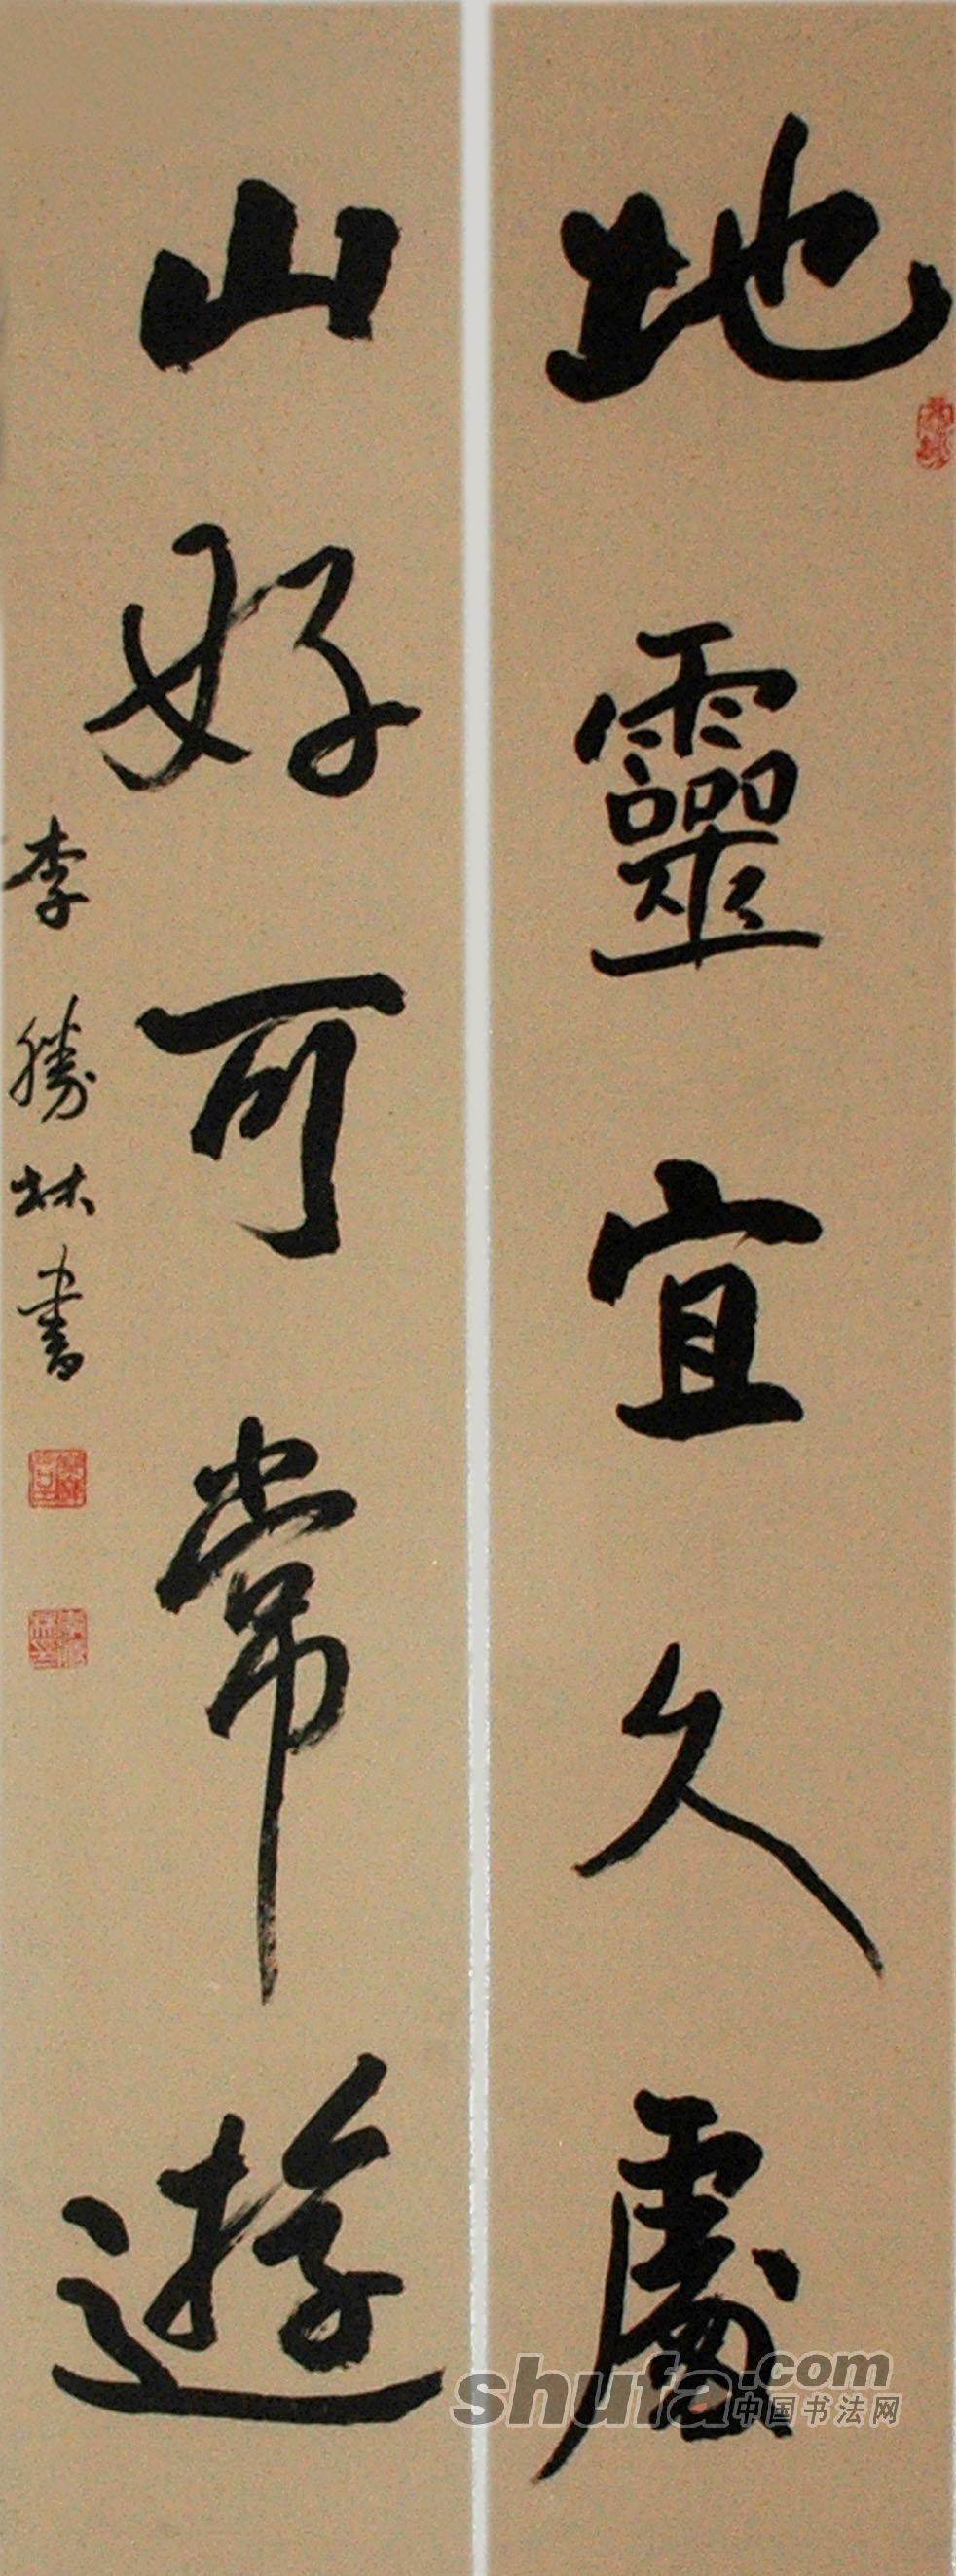 地靈宜久處
山好可常遊
李勝林書
shufa.com
中国书法网